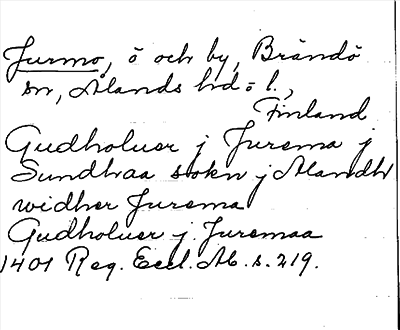 Jurmo, ö och by, Brändö
sn, Ålands hd o l.,
Finland
Gudholuer j Jurema j
Sundhaa sokn j Alandh
widher Jurema
Gudholuer j. Juremaa
1401 Reg. Eccl. Ab. s. 219.